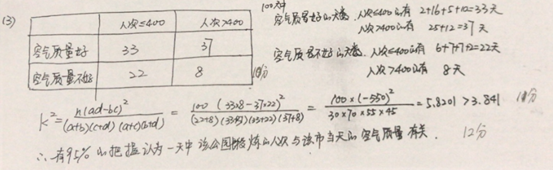 (3)
人次≤400 人次>400
空气质量好 33 37
空气质量不好 22 8
100天中
空气质量好的天数 人次≤400的有 2+16+5+10=33天
人次>400的有 25+12=37天
空气质量不好的天数 人次≤400的有 6+7+7+2=22天
人次>400的有 8天
10分
K²=n(ad-bc)²/(a+b)(c+d)(a+c)(b+d)=100(33×8-37×22)²/(22+8)(33+37)(33+22)(37+8)=100×(-550)²/30×70×55×45=5.8201>3.841 11分
∴有95%的把握认为一天中该公园锻炼的人次与该市当天的空气质量有关. 12分